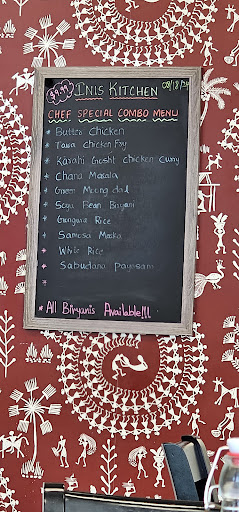 $9.99 INIS KITCHEN 09/18/24
CHEF SPECIAL COMBO MENU
* Butter Chicken
* Tawa Chicken Fry
* Karahi Gosht Chicken Curry
* Chana Masala
* Green Moong dal
* Soya Bean Biryani
* Gongura Rice
* Samosa
* White Rice
* Sabudana Payasam
*
* All Biryanis Available!!!